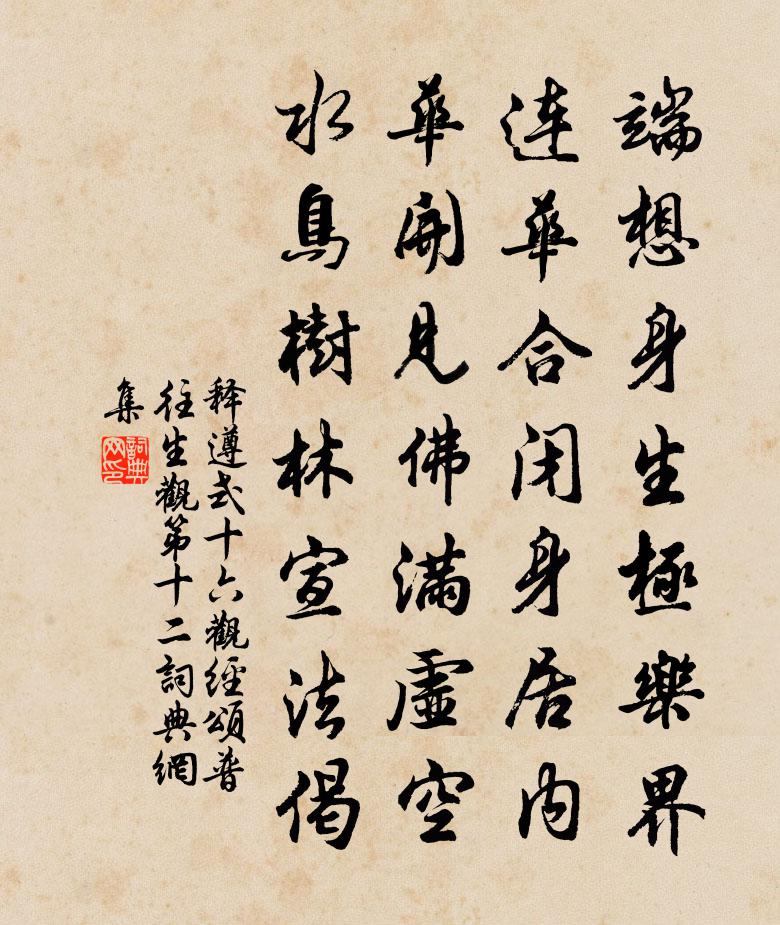 端想身生極樂界
連華合闭身居内
華開見佛滿虛空
水鳥樹林宣法偈
释遵式十六觀經頌普
往生觀第十二詞典網
集
詞典网印